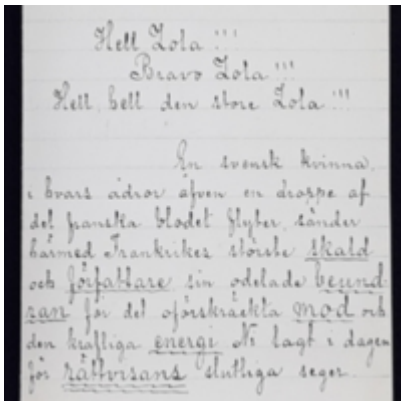 Hell Zola!!!
Bravo Zola!!!
Hell, hell den store Zola!!!
En svensk kvinna,
i hvars ådror äfven en droppe af
det franska blodet flyter, sänder
härmed Frankrikes störste skald
och författare sin odelade beund-
ran för det oförskräckta mod och
den kraftiga energi Ni lagt i dagen
för rättvisans slutliga seger.